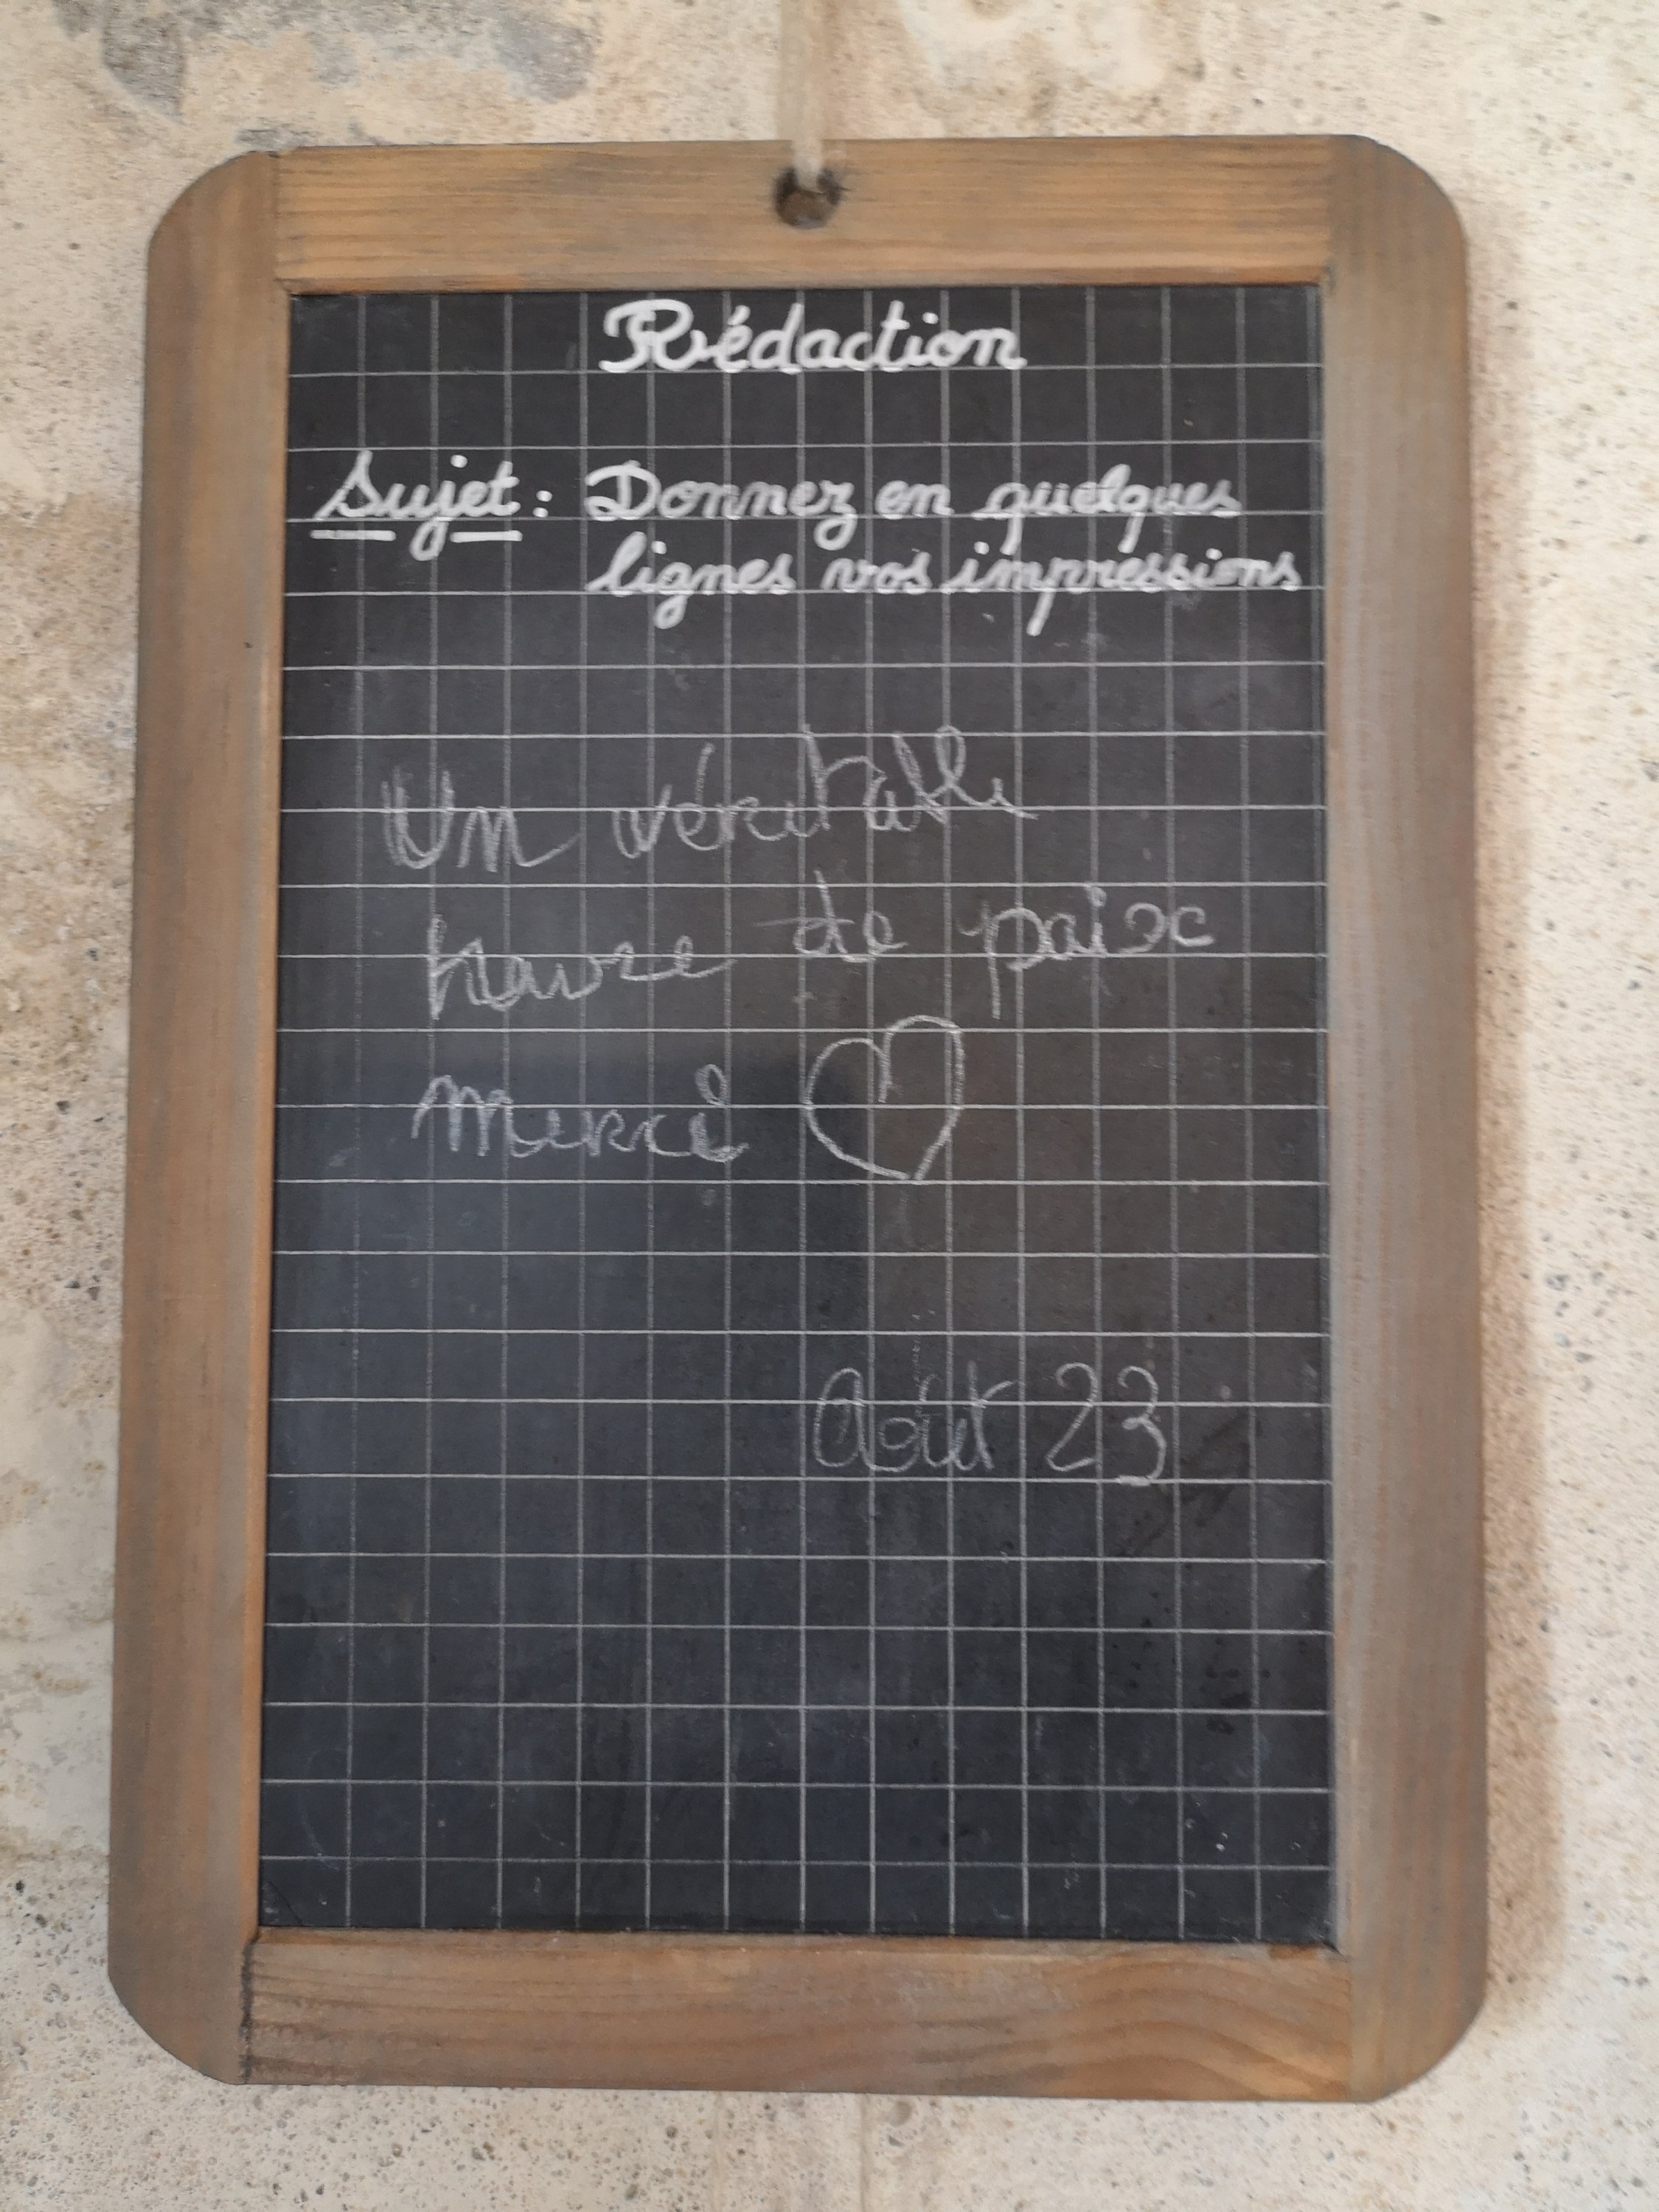 Rédaction
Sujet : Donnez en quelques
lignes vos impressions
Un véritable
havre de paix
merci
Août 23